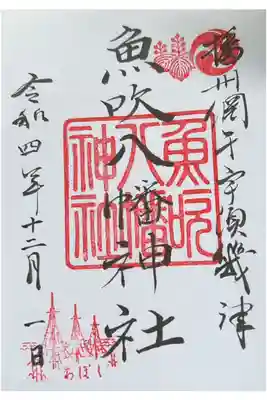 播州網干宇須幾津
魚吹八幡神社
魚吹
八幡
神社
令和四年十二月一日
あぼし